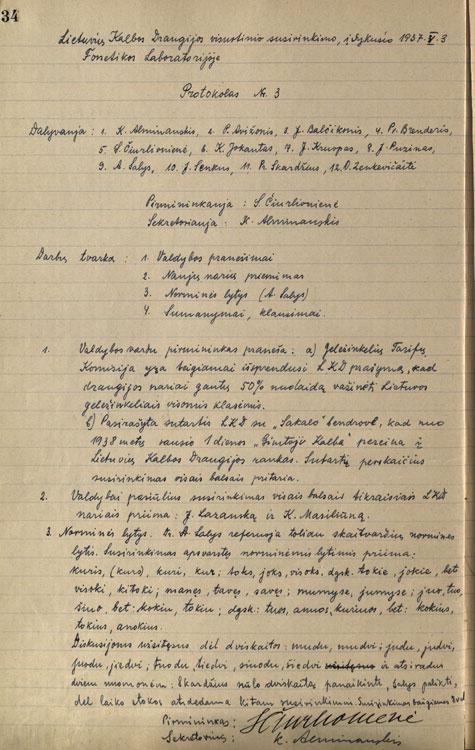 34
Lietuvių Kalbos Draugijos visuotinio susirinkimo, įvykusio 1937.V.3
Fonetikos Laboratorijoje
Protokolas Nr. 3
Dalyvauja: 1. K. Alminauskis, 2. P. Avižonis, 3. J. Balčikonis, 4. Pr. Brenderis,
5. S. Čiurlionienė, 6. K. Jokantas, 7. J. Kruopas, 8. J. Puzinas,
9. A. Salys, 10. J. Senkus, 11. Pr. Skardžius, 12. O. Zenkevičaitė
Pirmininkauja: S. Čiurlionienė
Sekretoriauja: K. Alminauskis
Darbų tvarka: 1. Valdybos pranešimai
2. Naujų narių priėmimas
3. Norminės lytys (A. Salys)
4. Sumanymai, klausimai.
1. Valdybos vardu pirmininkas praneša: a) Geležinkelių Tarifų
Komisija yra teigiamai išsprendusi LKD prašymą, kad
draugijos nariai gautų 50% nuolaidą važinėti Lietuvos
geležinkeliais visomis klasėmis.
b) Pasirašyta sutartis LKD su „Sakalo" bendrove, kad nuo
1938 metų sausio 1 dienos „Gimtoji Kalba" pereina į
Lietuvių Kalbos Draugijos rankas. Sutartį perskaičius
susirinkimas visais balsais pritaria.
2. Valdybai pasiūlius susirinkimas visais balsais tikraisiais LKD
nariais priima: J. Lazauską ir K. Masiliūną.
3. Norminės lytys. Dr. A. Salys referuoja toliau skaitvardžių normines
lytis. Susirinkimas apsvarstęs norminėmis lytimis priima:
kuris, (kurs), kuri, kur; toks, joks, visoks, dgsk. tokie, jokie, bet
visoki, kitoki; manęs, tavęs, savęs; mumyse, jumyse; juo, tuo,
šiuo, bet: kokiu, tokiu; dgsk: tuos, anuos, kuriuos, bet: kokius,
tokius, anokius.
Diskusijoms užsitęsus dėl dviskaitos: mudu, mudvi; judu, judvi,
juodu, jiedvi; tuodu, tiedvi, šiuodu, šiedvi ir atsiradus
dviem nuomonėm: Skardžius siūlo dviskaitą panaikinti, Salys palikti,
dėl laiko stokos atidedama kitam susirinkimui. Susirinkimas baigiamas
Pirmininkas: S Čiurlionienė
Sekretorius: K. Alminauskis